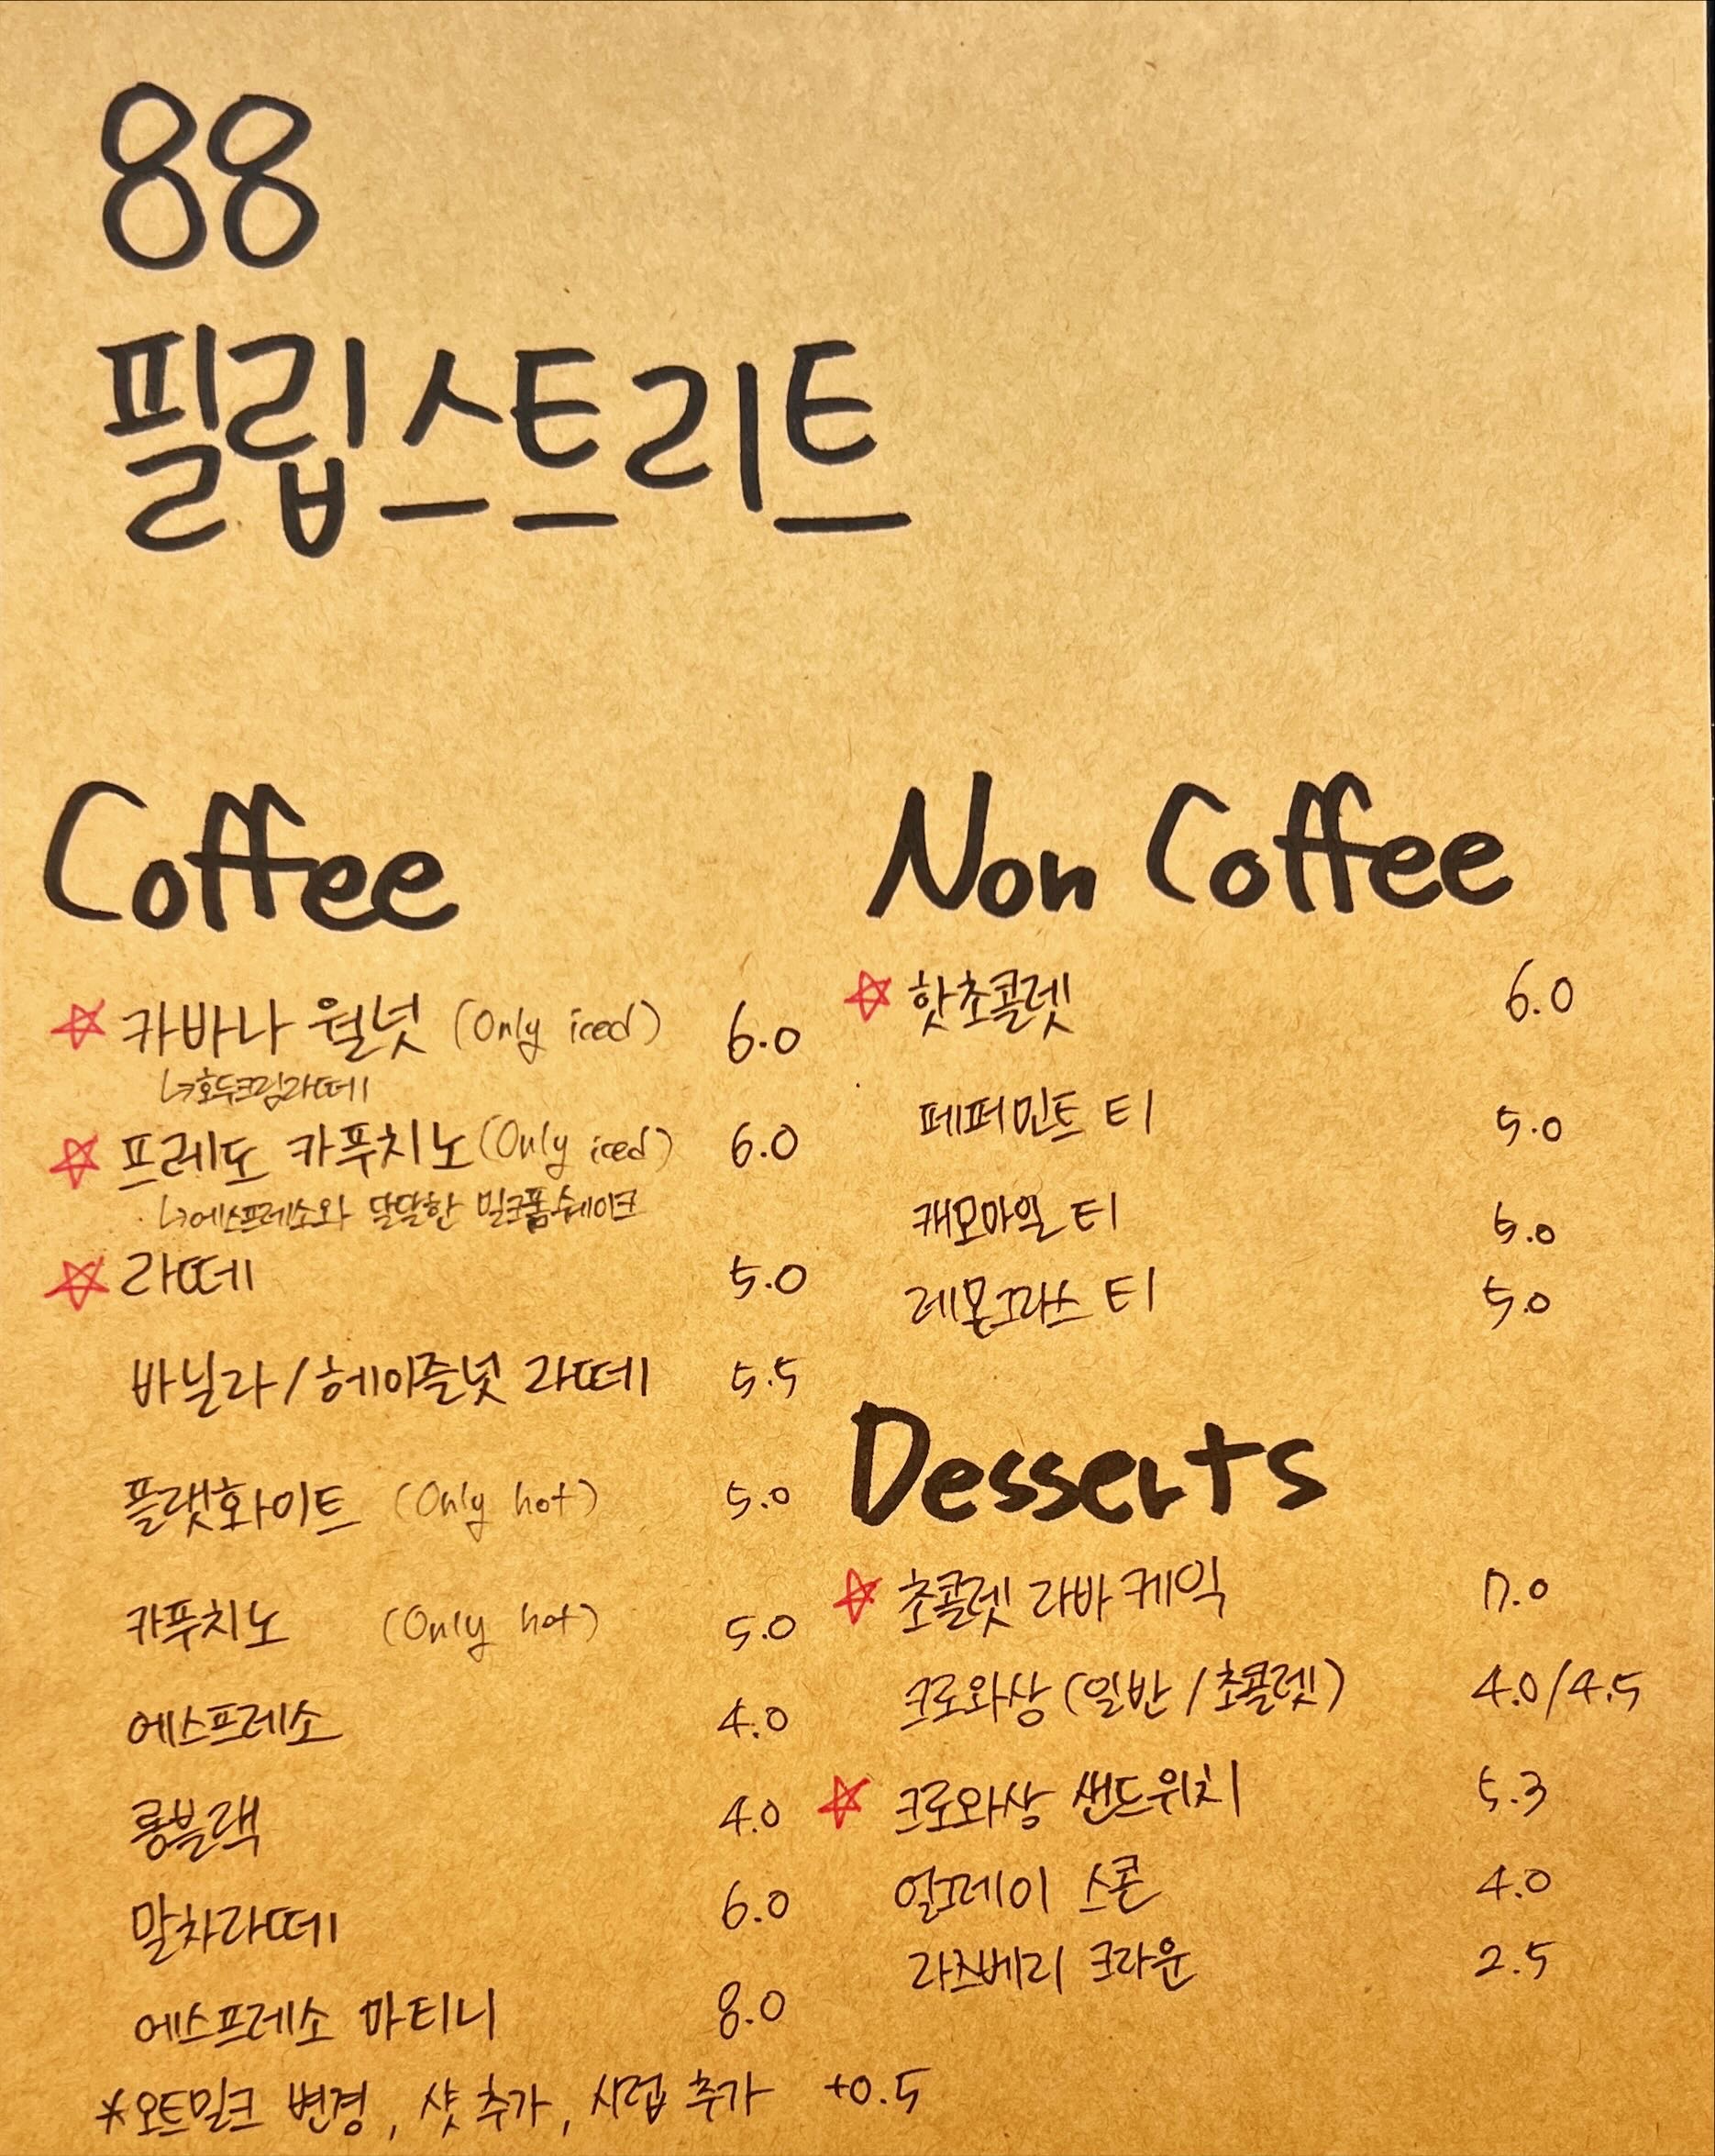 88
필립스트리트
Coffee
☆ 카바나 월넛 (Only iced) 6.0
↳호두크림라떼
☆ 프레도 카푸치노 (Only iced) 6.0
↳에스프레소와 달달한 밀크폼쉐이크
☆ 라떼 5.0
바닐라/헤이즐넛 라떼 5.5
플랫화이트 (Only hot) 5.0
카푸치노 (Only hot) 5.0
에스프레소 4.0
롱블랙 4.0
말차라떼 6.0
에스프레소 마티니 8.0
*오트밀크 변경, 샷 추가, 시럽 추가 +0.5
Non Coffee
☆ 핫초콜렛 6.0
페퍼민트 티 5.0
캐모마일 티 5.0
레몬그라스 티 5.0
Desserts
☆ 초콜렛 라바 케익 7.0
크로와상 (일반/초콜렛) 4.0/4.5
☆ 크로와상 샌드위치 5.3
얼그레이 스콘 4.0
라즈베리 크라운 2.5